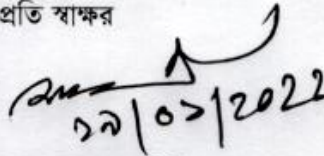 প্রতি স্বাক্ষর
১৯|০১|2022